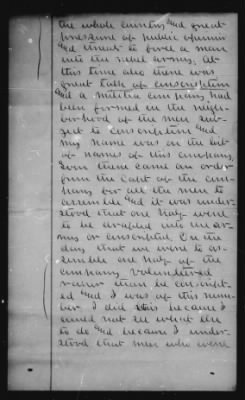 the whole country and great
pressure of public opinion
and threat to force a man
into the rebel army. At
this time also there was
great talk of conscription
and a militia company had
been formed in the neigh-
borhood of the men sub-
ject to conscription and
my name was on the list
of names of this company.
Soon there came an order
from the Capt of the com-
pany for all the men to
assemble and it was under-
stood that one half were
to be drafted into the ar-
my or conscripted. On the
day that we were to as-
semble one half of the
company volunteered
rather than be conscript-
ed and I was of this num-
ber. I did this because I
could not see what else
to do and because I under-
stood that men who were